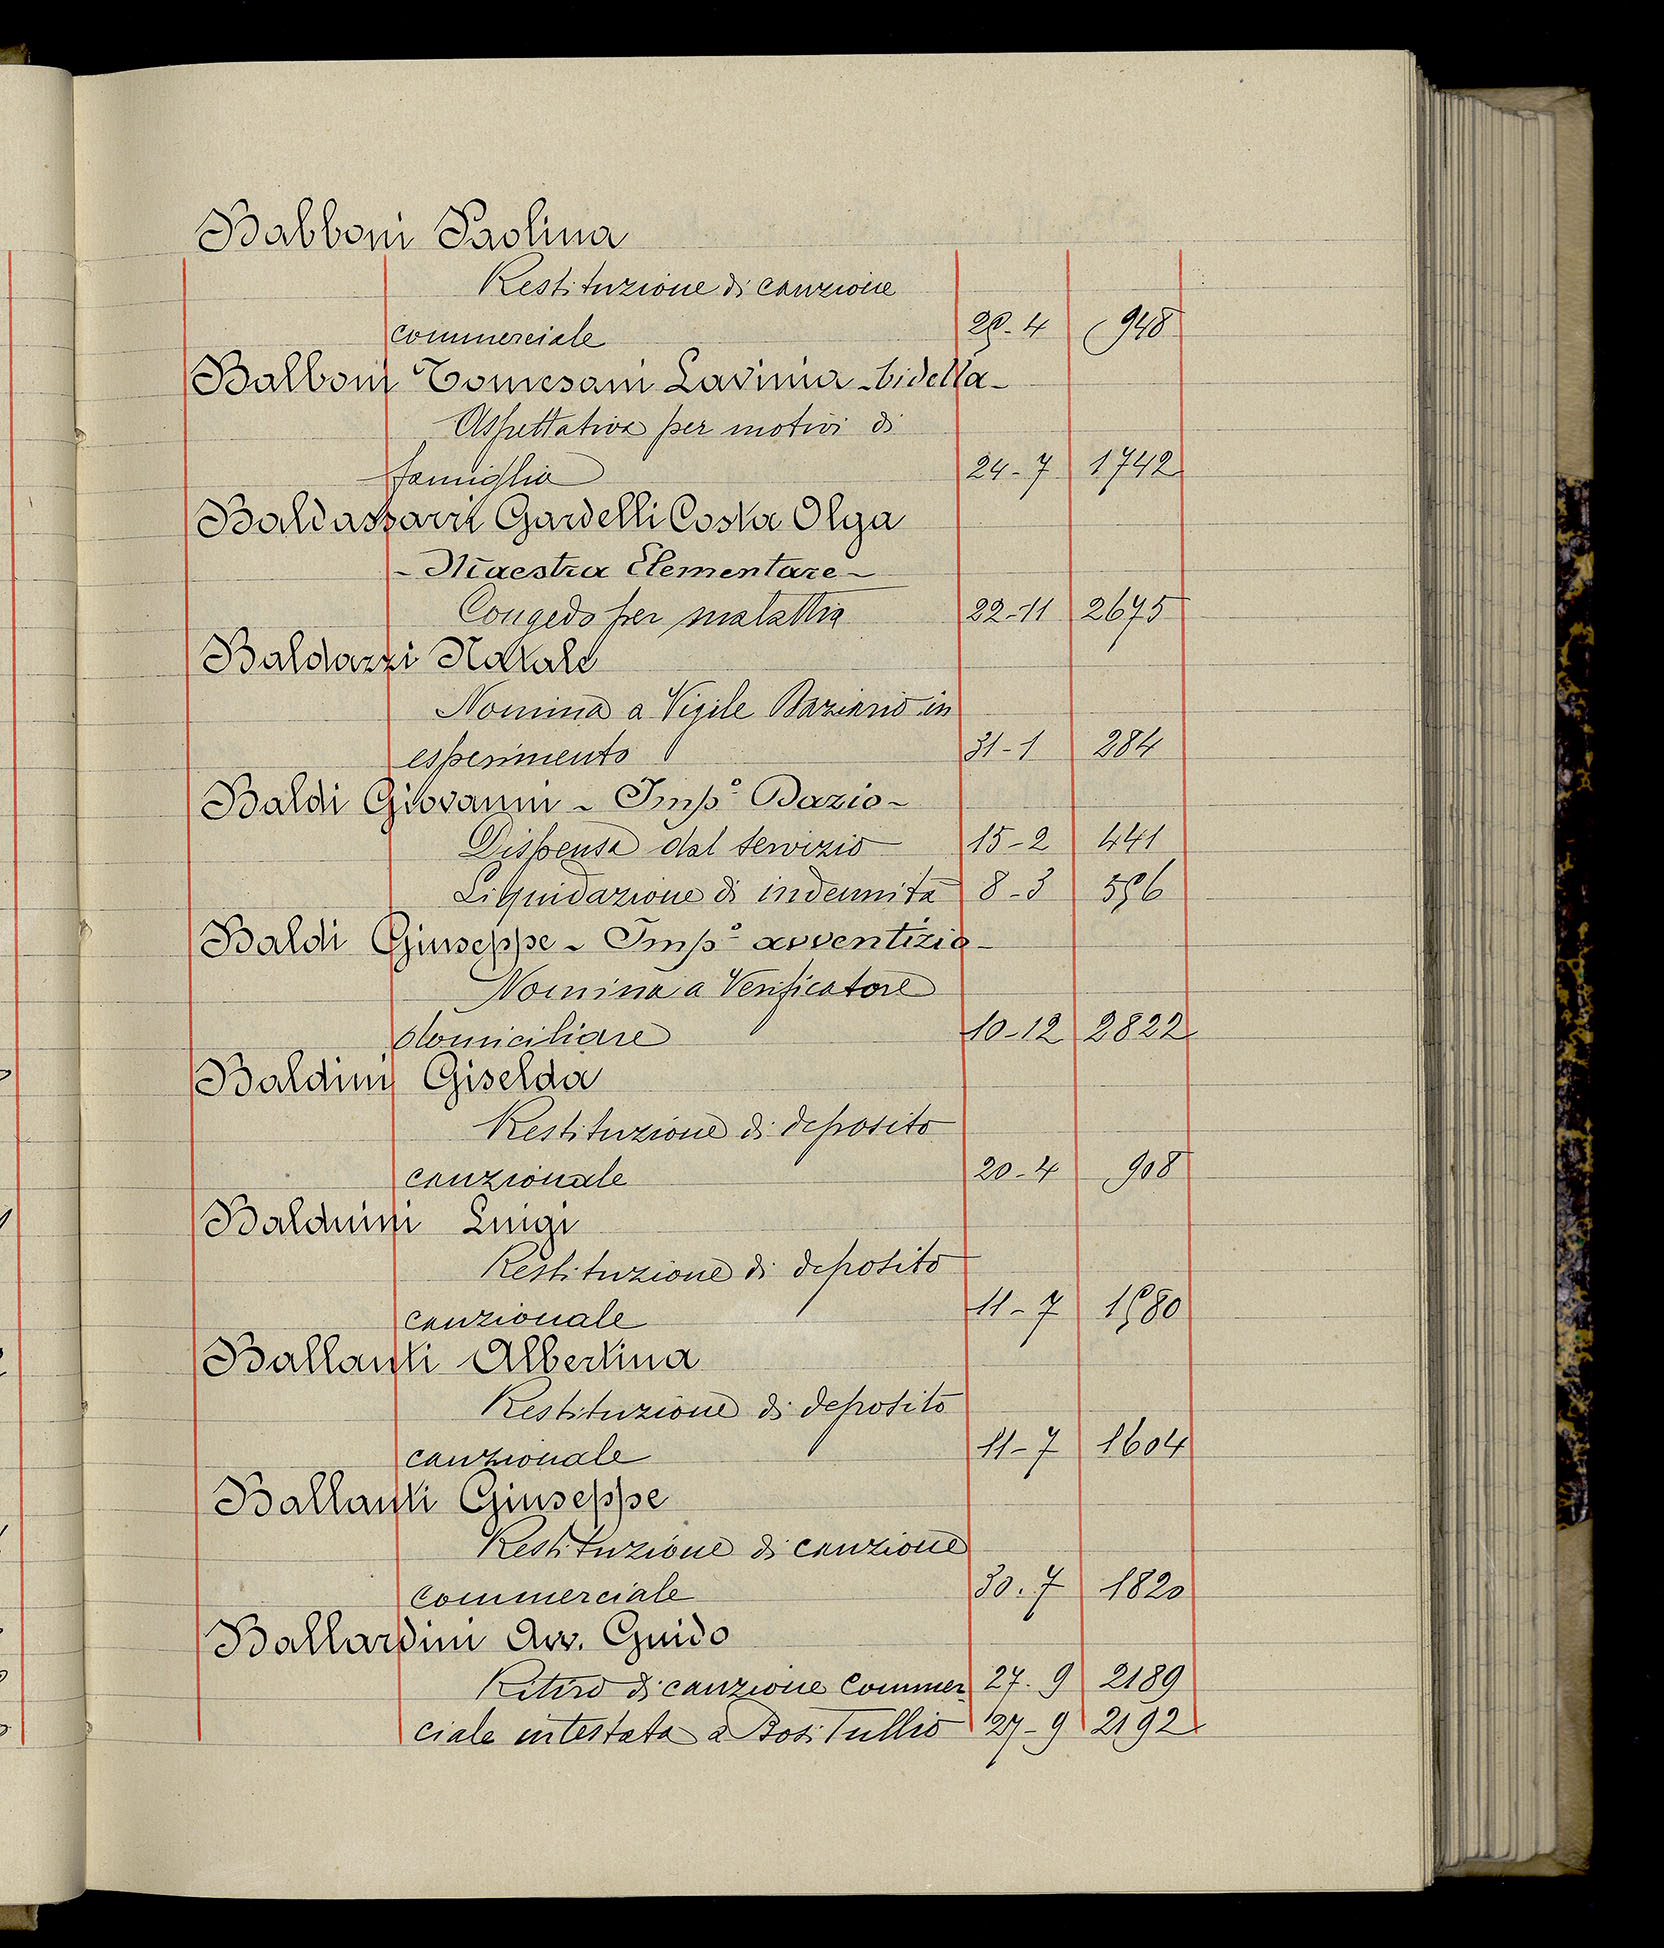 Babboni Paolina
Restituzione di cauzione
commerciale 25-4 948
Balboni Tomesani Lavinia - bidella -
Aspettativa per motivi di
famiglia 24-7 1742
Baldassarri Gardelli Costa Olga
- Maestra Elementare -
Congedo per malattia 22-11 2675
Baldazzi Natale
Nomina a Vigile Daziario in
esperimento 31-1 284
Baldi Giovanni - Imp° Dazio -
Dispensa dal servizio 15-2 441
Liquidazione di indennità 8-3 556
Baldi Giuseppe - Imp° avventizio -
Nomina a Verificatore
domiciliare 10-12 2822
Baldini Giselda
Restituzione di deposito
cauzionale 20-4 908
Balduini Luigi
Restituzione di deposito
cauzionale 11-7 1580
Ballanti Albertina
Restituzione di deposito
cauzionale 11-7 1604
Ballanti Giuseppe
Restituzione di cauzione
commerciale 30.7 1820
Ballardini Avv. Guido
Ritiro di cauzione commer 27.9 2189
ciale intestata a Bosi Tullio 27-9 2192